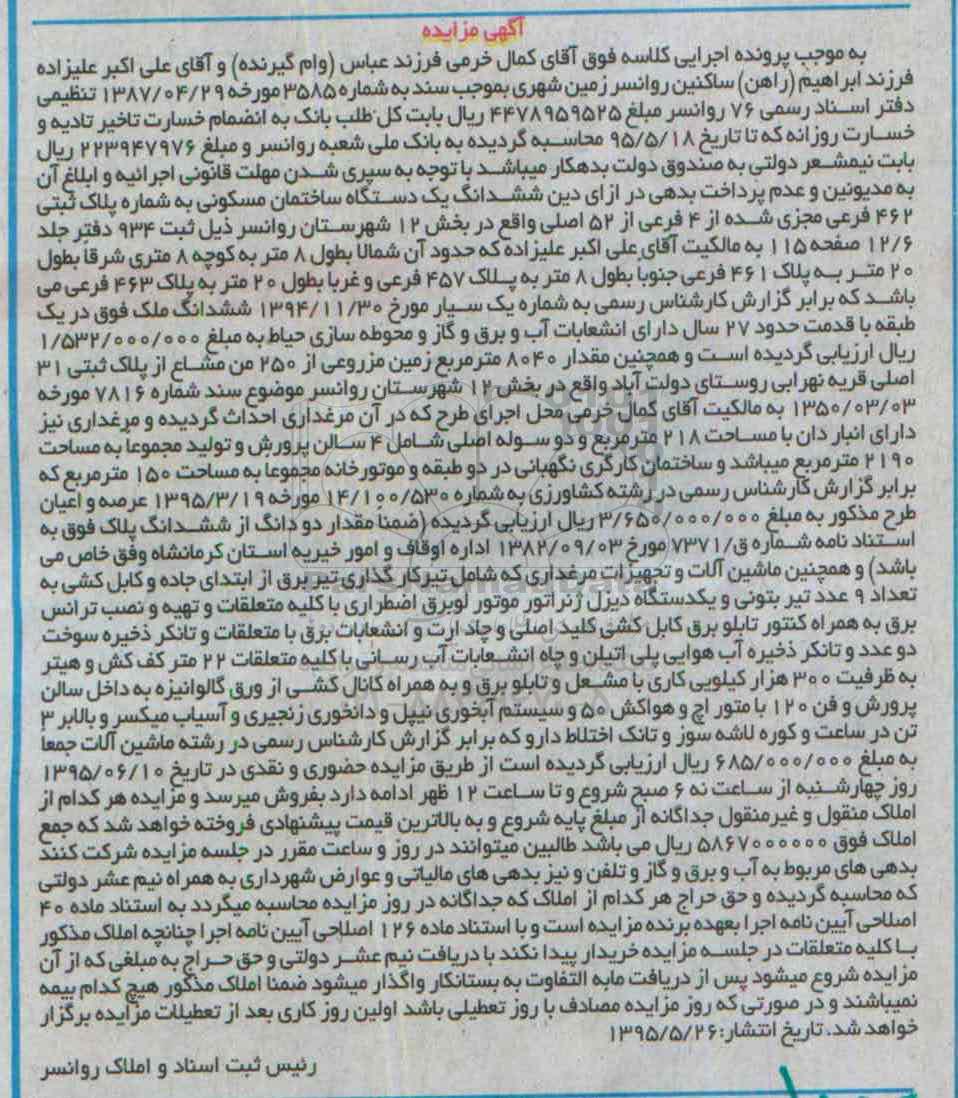 آگهی مزایده
به موجب پرونده اجرایی کلاسه فوق آقای کمال خرمی فرزند عباس (وام گیرنده) و آقای علی اکبر علیزاده
فرزند ابراهیم (راهن) ساکنین روانسر زمین شهری بموجب سند به شماره ۳۵۸۵ مورخه ۱۳۸۷/۰۴/۲۹ تنظیمی
دفتر اسناد رسمی ۷۶ روانسر مبلغ ۴۴۷۸۹۵۹۵۲۵ ریال بابت کل طلب بانک به انضمام خسارت تاخیر تادیه و
خسارت روزانه که تا تاریخ ۹۵/۵/۱۸ محاسبه گردیده به بانک ملی شعبه روانسر و مبلغ ۲۲۳۹۴۷۹۷۶ ریال
بابت نیمشعر دولتی به صندوق دولت بدهکار میباشد با توجه به سپری شدن مهلت قانونی اجرائیه و ابلاغ آن
به مدیونین و عدم پرداخت بدهی در ازای دین ششدانگ یک دستگاه ساختمان مسکونی به شماره پلاک ثبتی
۴۶۲ فرعی مجزی شده از ۴ فرعی از ۵۲ اصلی واقع در بخش ۱۲ شهرستان روانسر ذیل ثبت ۹۳۴ دفتر جلد
۱۲/۶ صفحه ۱۱۵ به مالکیت آقای علی اکبر علیزاده که حدود آن شمالا بطول ۸ متر به کوچه ۸ متری شرقا بطول
۲۰ متر به پلاک ۴۶۱ فرعی جنوبا بطول ۸ متر به پلاک ۴۵۷ فرعی و غربا بطول ۲۰ متر به پلاک ۴۶۳ فرعی می
باشد که برابر گزارش کارشناس رسمی به شماره یک سیار مورخ ۱۳۹۴/۱۱/۳۰ ششدانگ ملک فوق در یک
طبقه با قدمت حدود ۲۷ سال دارای انشعابات آب و برق و گاز و محوطه سازی حیاط به مبلغ ۱/۵۳۲/۰۰۰/۰۰۰
ریال ارزیابی گردیده است و همچنین مقدار ۸۰۴۰ مترمربع زمین مزروعی از ۲۵۰ من مشاع از پلاک ثبتی ۳۱
اصلی قریه نهرابی روستای دولت آباد واقع در بخش ۱۲ شهرستان روانسر موضوع سند شماره ۷۸۱۶ مورخه
۱۳۵۰/۰۳/۰۳ به مالکیت آقای کمال خرمی محل اجرای طرح که در آن مرغداری احداث گردیده و مرغداری نیز
دارای انبار دان با مساحت ۲۱۸ مترمربع و دو سوله اصلی شامل ۴ سالن پرورش و تولید مجموعا به مساحت
۲۱۹۰ مترمربع میباشد و ساختمان کارگری نگهبانی در دو طبقه و موتورخانه مجموعا به مساحت ۱۵۰ مترمربع که
برابر گزارش کارشناس رسمی در رشته کشاورزی به شماره ۱۴/۱۰۰/۵۳۰ مورخه ۱۳۹۵/۳/۱۹ عرصه و اعیان
طرح مذکور به مبلغ ۳/۶۵۰/۰۰۰/۰۰۰ ریال ارزیابی گردیده (ضمنا مقدار دو دانگ از ششدانگ پلاک فوق به
استناد نامه شماره ق/۷۳۷۱ مورخ ۱۳۸۲/۰۹/۰۳ اداره اوقاف و امور خیریه استان کرمانشاه وفق خاص می
باشد) و همچنین ماشین آلات و تجهیزات مرغداری که شامل تیرکار گذاری تیر برق از ابتدای جاده و کابل کشی به
تعداد ۹ عدد تیر بتونی و یکدستگاه دیزل ژنراتور موتور لوبرق اضطراری با کلیه متعلقات و تهیه و نصب ترانس
برق به همراه کنتور تابلو برق کابل کشی کلید اصلی و چاد ارت و انشعابات برق با متعلقات و تانکر ذخیره سوخت
دو عدد و تانکر ذخیره آب هوایی پلی اتیلن و چاه انشعابات آب رسانی با کلیه متعلقات ۲۲ متر کف کش و هیتر
به ظرفیت ۳۰۰ هزار کیلویی کاری با مشعل و تابلو برق و به همراه کانال کشی از ورق گالوانیزه به داخل سالن
پرورش و فن ۱۲۰ با متور اچ و هواکش ۵۰ و سیستم آبخوری نیپل و دانخوری زنجیری و آسیاب میکسر و بالابر ۳
تن در ساعت و کوره لاشه سوز و تانک اختلاط دارو که برابر گزارش کارشناس رسمی در رشته ماشین آلات جمعا
به مبلغ ۶۸۵/۰۰۰/۰۰۰ ریال ارزیابی گردیده است از طریق مزایده حضوری و نقدی در تاریخ ۱۳۹۵/۰۶/۱۰
روز چهارشنبه از ساعت نه ۶ صبح شروع و تا ساعت ۱۲ ظهر ادامه دارد بفروش میرسد و مزایده هر کدام از
املاک منقول و غیرمنقول جداگانه از مبلغ پایه شروع و به بالاترین قیمت پیشنهادی فروخته خواهد شد که جمع
املاک فوق ۵۸۶۷۰۰۰۰۰۰ ریال می باشد طالبین میتوانند در روز و ساعت مقرر در جلسه مزایده شرکت کنند
بدهی های مربوط به آب و برق و گاز و تلفن و نیز بدهی های مالیاتی و عوارض شهرداری به همراه نیم عشر دولتی
که محاسبه گردیده و حق حراج هر کدام از املاک که جداگانه در روز مزایده محاسبه میگردد به استناد ماده ۴۰
اصلاحی آیین نامه اجرا بعهده برنده مزایده است و با استناد ماده ۱۲۶ اصلاحی آیین نامه اجرا چنانچه املاک مذکور
با کلیه متعلقات در جلسه مزایده خریدار پیدا نکند با دریافت نیم عشر دولتی و حق حراج به مبلغی که از آن
مزایده شروع میشود پس از دریافت مابه التفاوت به بستانکار واگذار میشود ضمنا املاک مذکور هیچ کدام بیمه
نمیباشند و در صورتی که روز مزایده مصادف با روز تعطیلی باشد اولین روز کاری بعد از تعطیلات مزایده برگزار
خواهد شد. تاریخ انتشار: ۱۳۹۵/۵/۲۶
رئیس ثبت اسناد و املاک روانسر